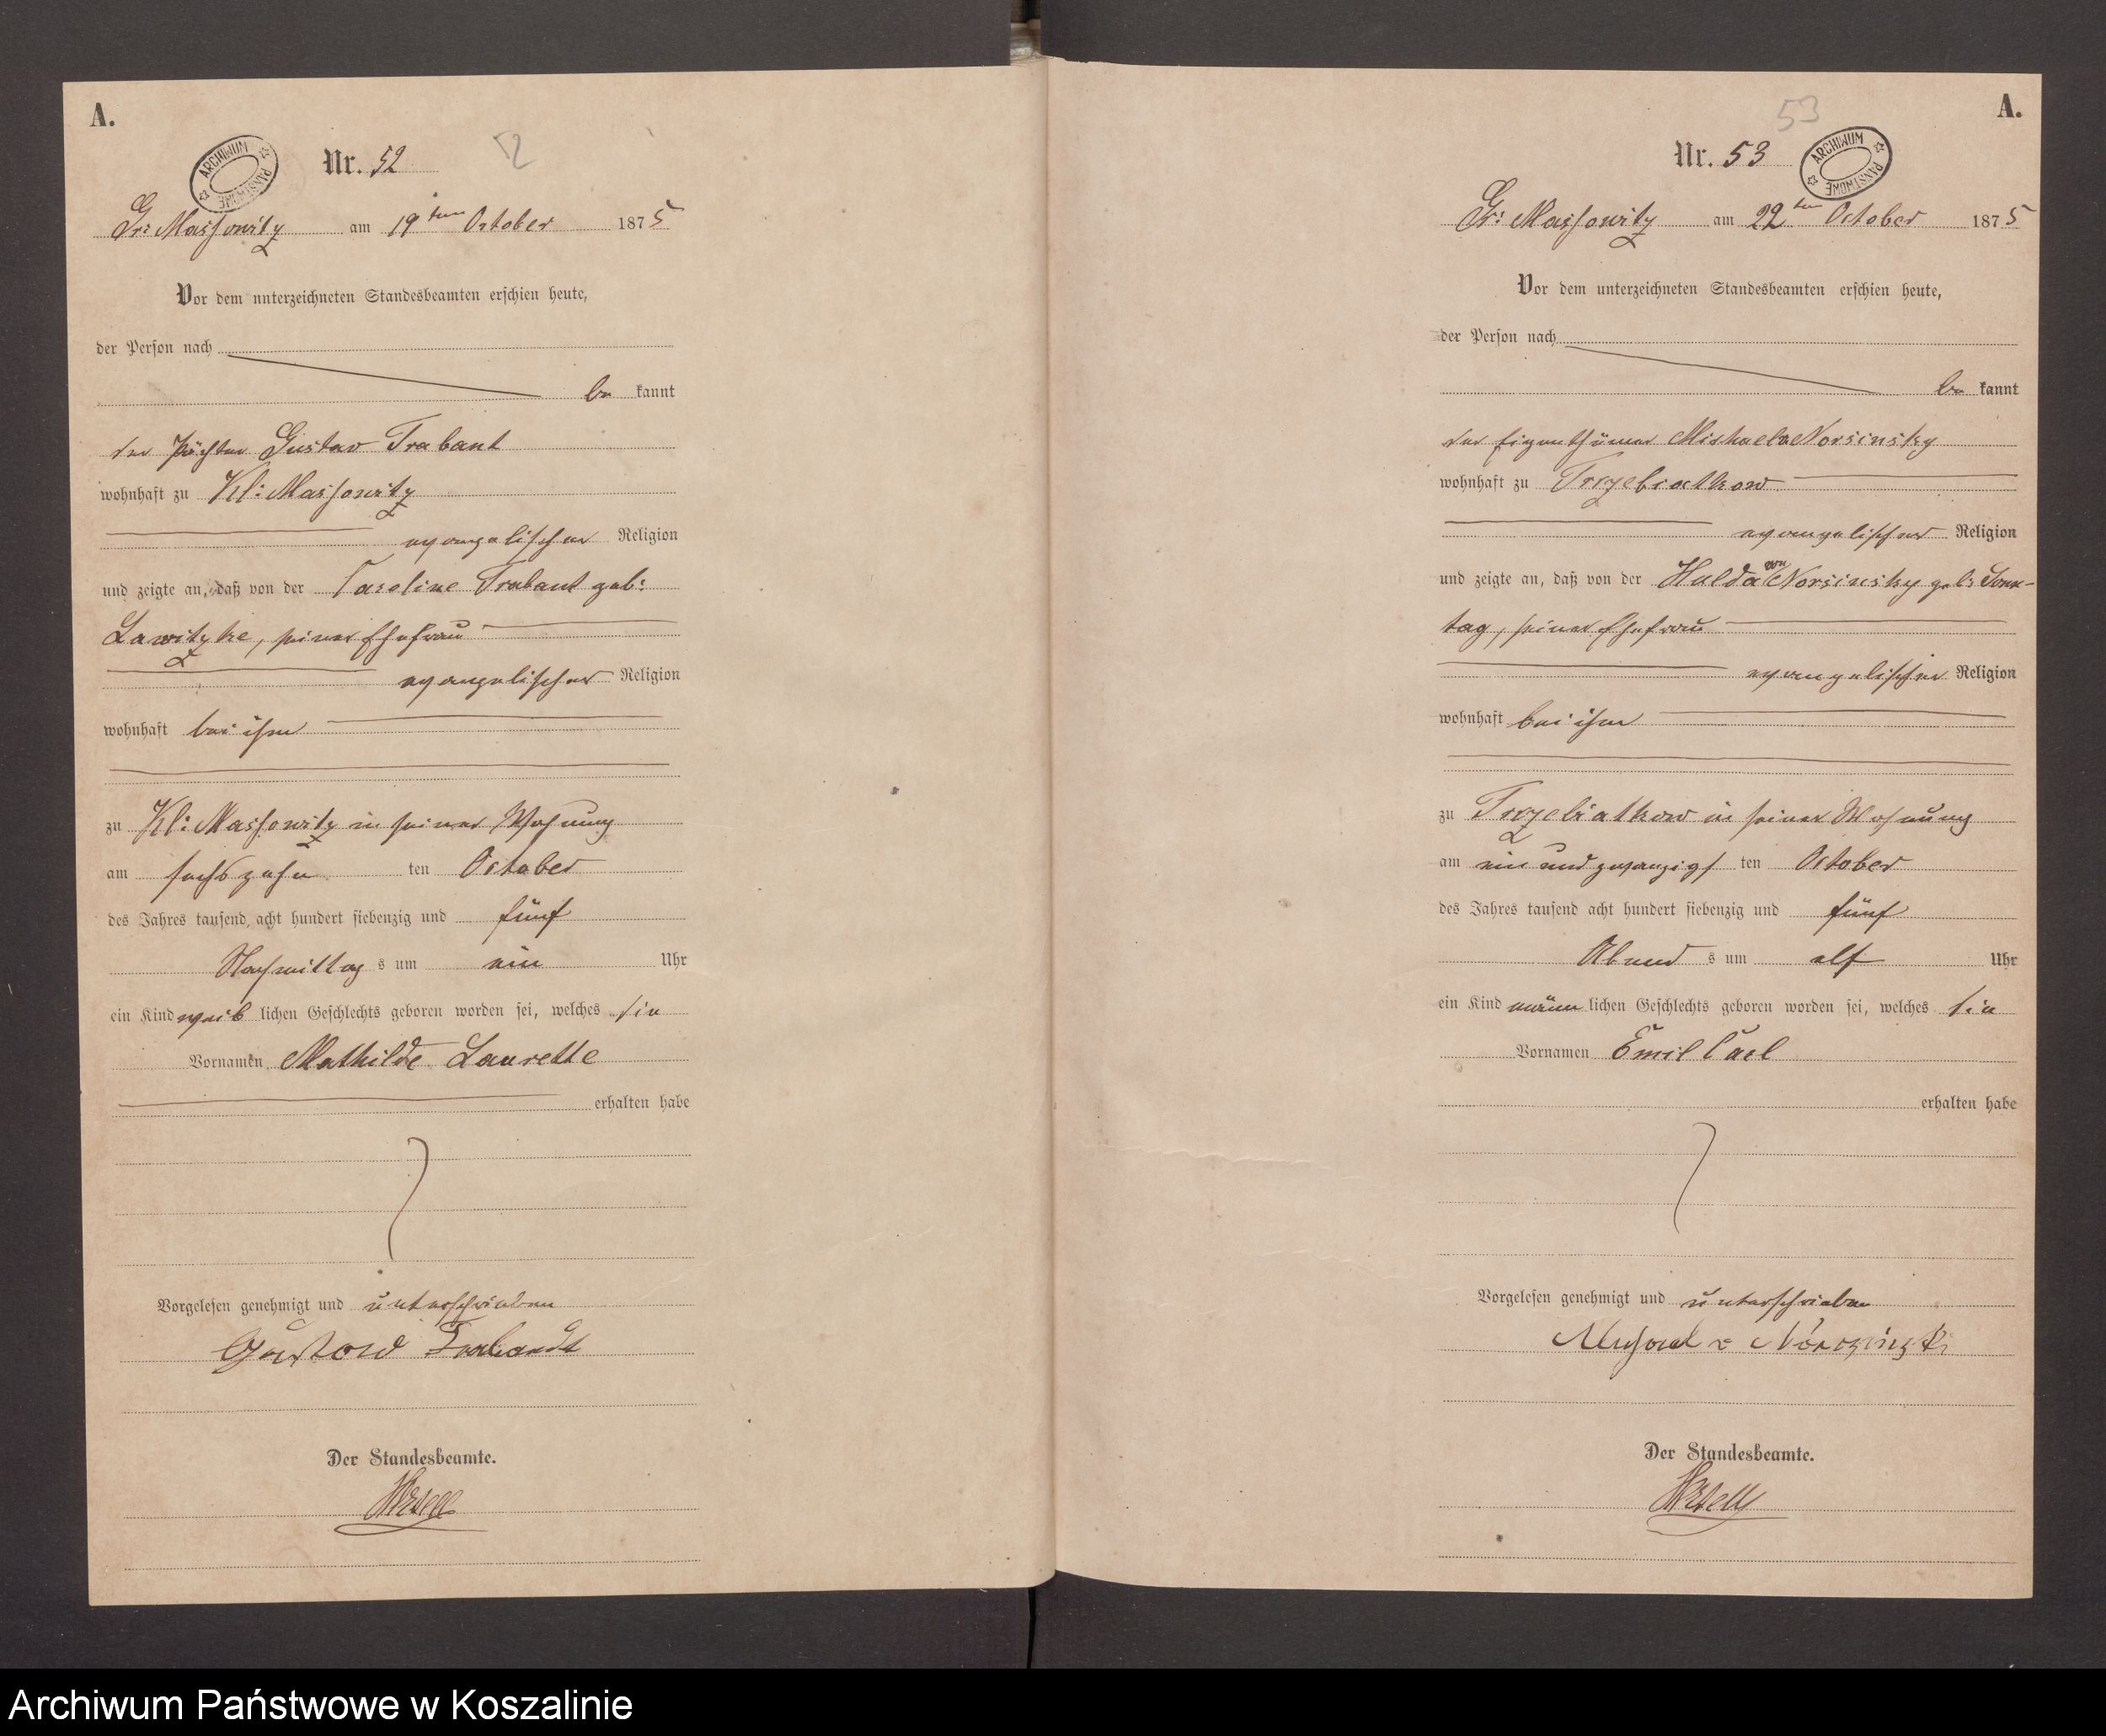 A.
ARCHIWUM PAŃSTWOWE
Nr. 52
52
Gr: Massowitz am 19ten October 1875
Vor dem unterzeichneten Standesbeamten erschien heute,
der Person nach
be kannt
der Pächter Gustav Trabant
wohnhaft zu Kl: Massowitz
evangelischer Religion
und zeigte an, daß von der Caroline Trabant geb:
Lawitzke, seiner Ehefrau
evangelischer Religion
wohnhaft bei ihm
zu Kl: Massowitz in seiner Wohnung
am sechszehn ten October
des Jahres tausend acht hundert siebenzig und fünf
Nachmittag s um ein Uhr
ein Kind weib lichen Geschlechts geboren worden sei, welches die
Vornamen Mathilde Laurette
erhalten habe
Vorgelesen genehmigt und unterschrieben
Gustav Trabandt
Der Standesbeamte.
A.
53
Nr. 53
ARCHIWUM PAŃSTWOWE
Gr: Massowitz am 22ten October 1875
Vor dem unterzeichneten Standesbeamten erschien heute,
der Person nach
be kannt
der Eigenthümer Michael v Norsinsky
wohnhaft zu Trzebiatkow
evangelischer Religion
und zeigte an, daß von der Hulda von Norsinsky geb: Sonn-
tag, seiner Ehefrau
evangelischer Religion
wohnhaft bei ihm
zu Trzebiatkow in seiner Wohnung
am ein und zwanzigs ten October
des Jahres tausend acht hundert siebenzig und fünf
Abend s um elf Uhr
ein Kind männ lichen Geschlechts geboren worden sei, welches die
Vornamen Emil Carl
erhalten habe
Vorgelesen genehmigt und unterschrieben
Michael v Norczinski
Der Standesbeamte.
Archiwum Państwowe w Koszalinie